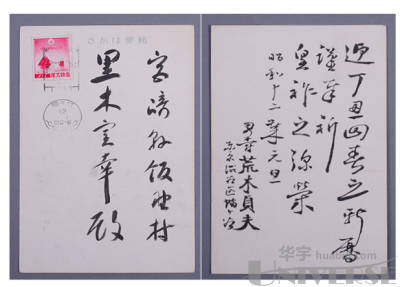 郵便はかき
宮崎縣飯野村
黒木
殿
迎丁丑回春之新暦
謹奉祈
皇祚之弥榮
昭和十二年元旦
男爵荒木貞夫
东京渋谷区幡ヶ谷
华宇
UNIVERSE